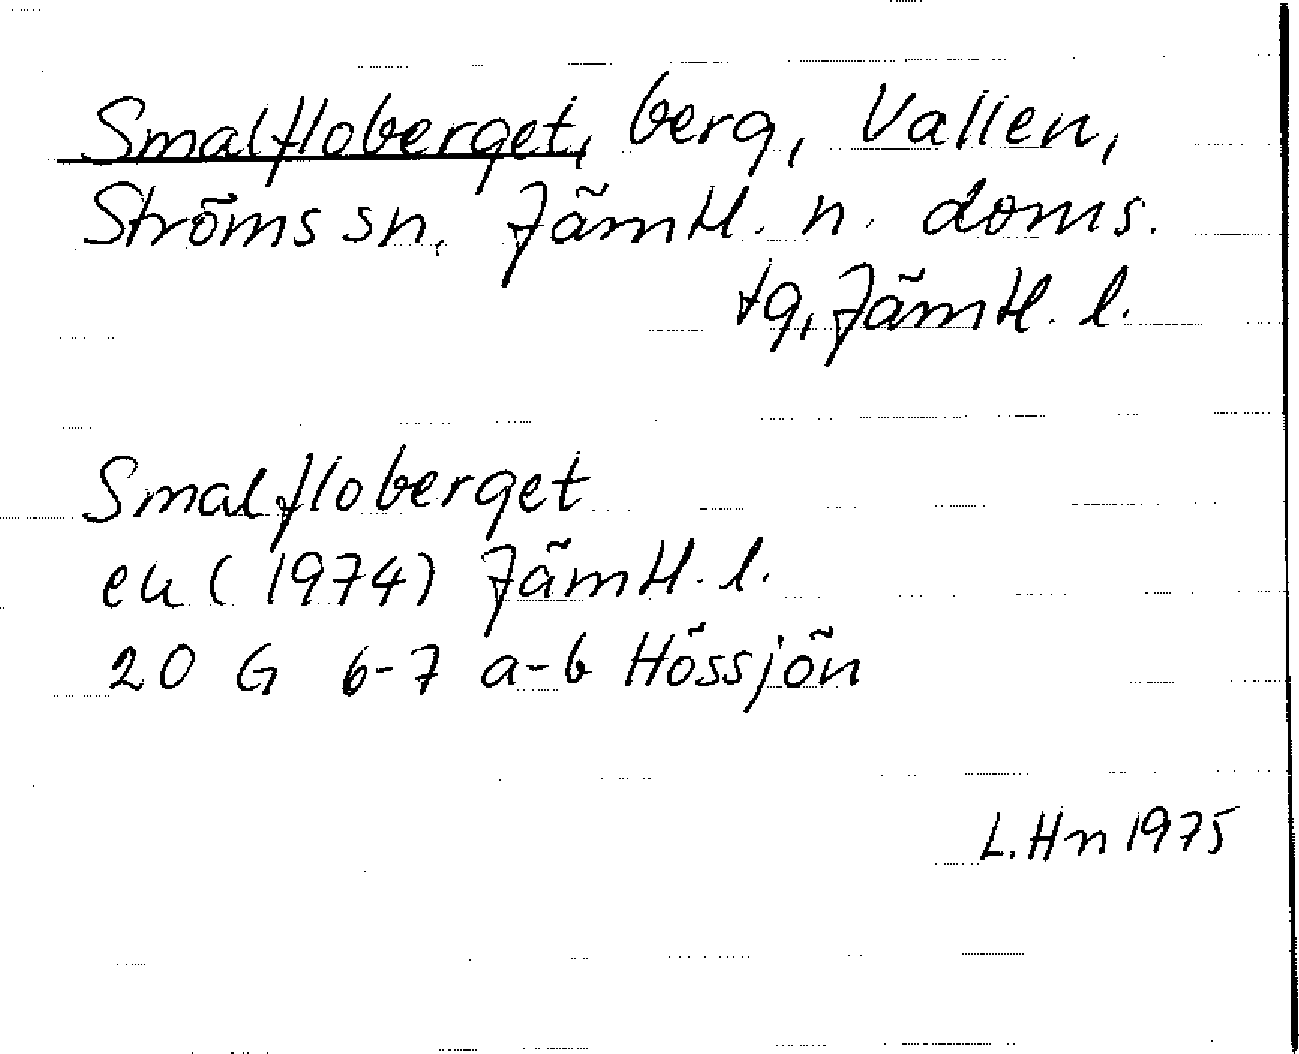 Smalfloberget, berg, Vallen,
Ströms sn. Jämtl. n. doms.
tg, Jämtl. l.
Smalfloberget
ek (1974) Jämtl. l.
20 G 6-7 a-b Hössjön
L. Hn 1975